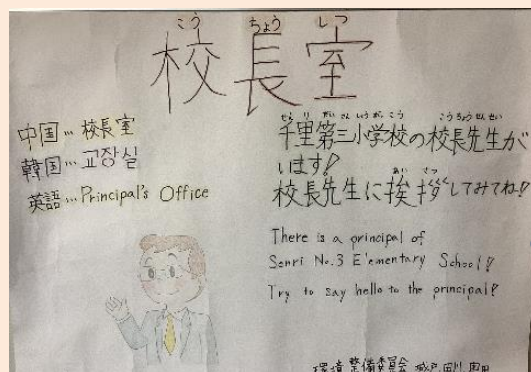 こう ちょう しつ
校長室
中国…校長室
韓国…교장실
英語…Principal's Office
せんりだいさんしょうがっこう こうちょうせんせい
千里第三小学校の校長先生が
います!
あいさつ
校長先生に挨拶してみてね!!
There is a principal of
Senri No.3 Elementary School!
Try to say hello to the principal!
環境整備委員会